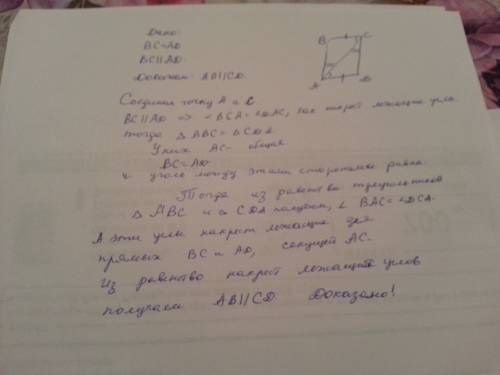 Дано:
BC=AD
BC||AD.
Доказать: AB||CD.
B C
A D
Соединим точку A и C
BC||AD => ∠BCA=∠DAC, как накрест лежащие углы.
тогда △ABC=△CDA
У них AC- общая
BC=AD
и угол между этими сторонами равны.
Тогда из равенства треугольников
△ABC и △CDA получаем, ∠BAC=∠DCA.
А эти углы накрест лежащие для
прямых BC и AD, секущей AC.
Из равенство накрест лежащий углов
получаем AB||CD. Доказано!